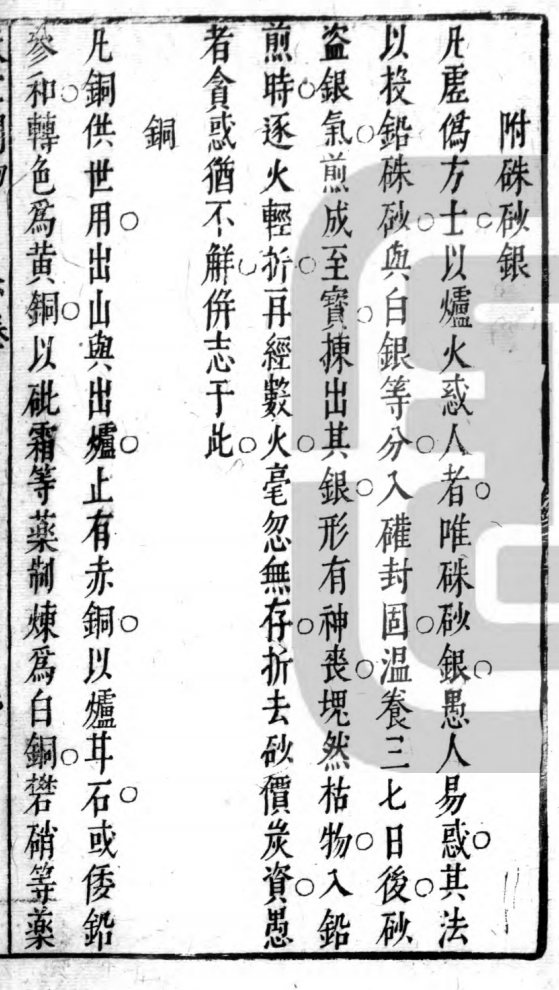 附硃砂銀
凡虛僞方士以爐火惑人者唯硃砂銀愚人易惑其法
以投鉛硃砂與白銀等分入礶封固溫養三七日後砂
盜銀氣煎成至寳揀出其銀形有神喪塊然枯物入鉛
煎時逐火輕折再經數火毫忽無存折去砂價炭資愚
者貪惑猶不解併志于此
銅
凡銅供世用出山與出爐止有赤銅以爐甘石或倭鉛
參和轉色爲黃銅以砒霜等藥制煉爲白銅礬硝等藥